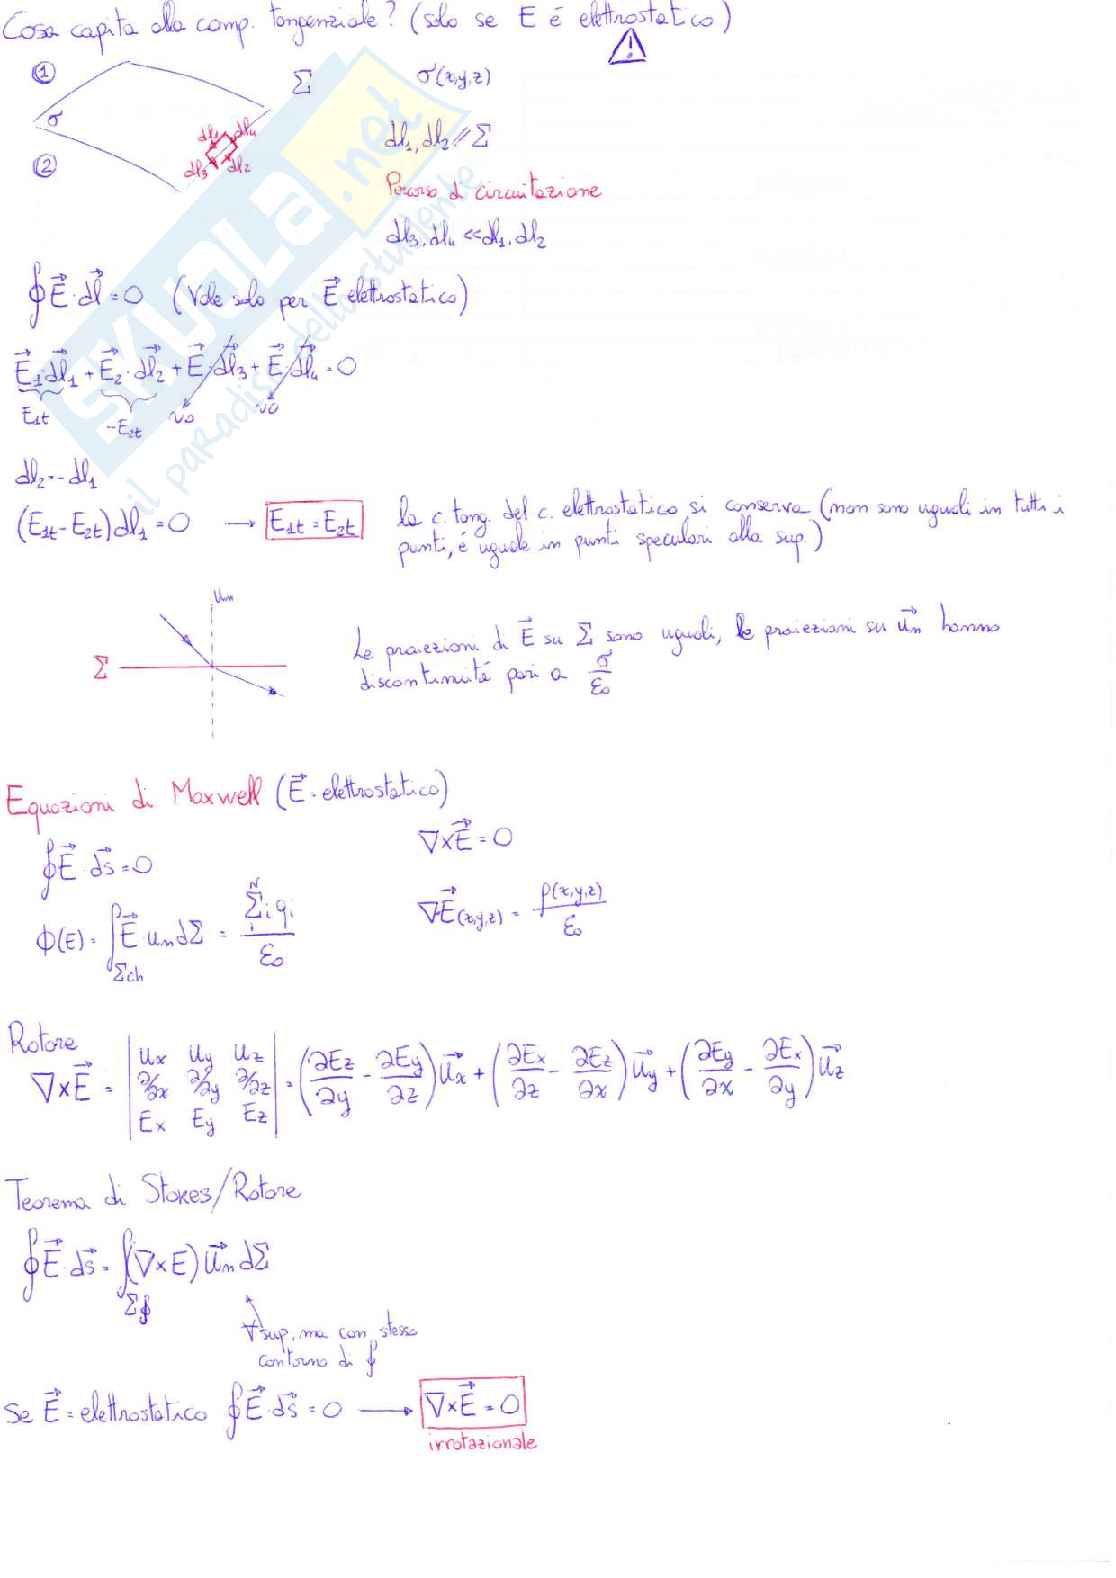 Cosa capita alla comp. tangenziale? (solo se E é elettrostatico)
(1) Σ σ(x,y,z)
σ
dl₁ dl₄
dl₃ dl₂
(2)
dl₁, dl₂ // Σ
Percorso di circuitazione
dl₃, dl₄ << dl₁, dl₂
∮ E⃗ · dl⃗ = 0 (Vale solo per E⃗ elettrostatico)
E⃗₁·dl⃗₁ + E⃗₂·dl⃗₂ + E⃗·dl⃗₃ + E⃗·dl⃗₄ = 0
E₁t -E₂t ~0 ~0
dl₂ = -dl₁
(E₁t - E₂t) dl₁ = 0 → E₁t = E₂t
la c. tang. del c. elettrostatico si conserva (non sono uguali in tutti i
punti, é uguale in punti speculari alla sup)
uₙ
Σ
Le proiezioni di E⃗ su Σ sono uguali, le proiezioni su u⃗ₙ hanno
discontinuitá pari a σ/ε₀
Equazioni di Maxwell (E⃗ = elettrostatico)
∮ E⃗ · ds⃗ = 0 ∇×E⃗ = 0
Φ(E) = ∫_Σch E⃗ · uₙ dΣ = Σᵢ qᵢ / ε₀ ∇·E⃗(x,y,z) = ρ(x,y,z)/ε₀
Rotore
∇×E⃗ = | uₓ u_y u_z ; ∂/∂x ∂/∂y ∂/∂z ; Eₓ E_y E_z | = (∂E_z/∂y - ∂E_y/∂z) u⃗ₓ + (∂Eₓ/∂z - ∂E_z/∂x) u⃗_y + (∂E_y/∂x - ∂Eₓ/∂y) u⃗_z
Teorema di Stokes/Rotore
∮ E⃗ · ds⃗ = ∫_Σ∮ (∇×E) u⃗ₙ dΣ
∀ sup, ma con stesso
contorno di ∮
Se E⃗ = elettrostatico ∮ E⃗ · ds⃗ = 0 → ∇×E⃗ = 0
irrotazionale
SKUOLA.net
il paradiso dello studente